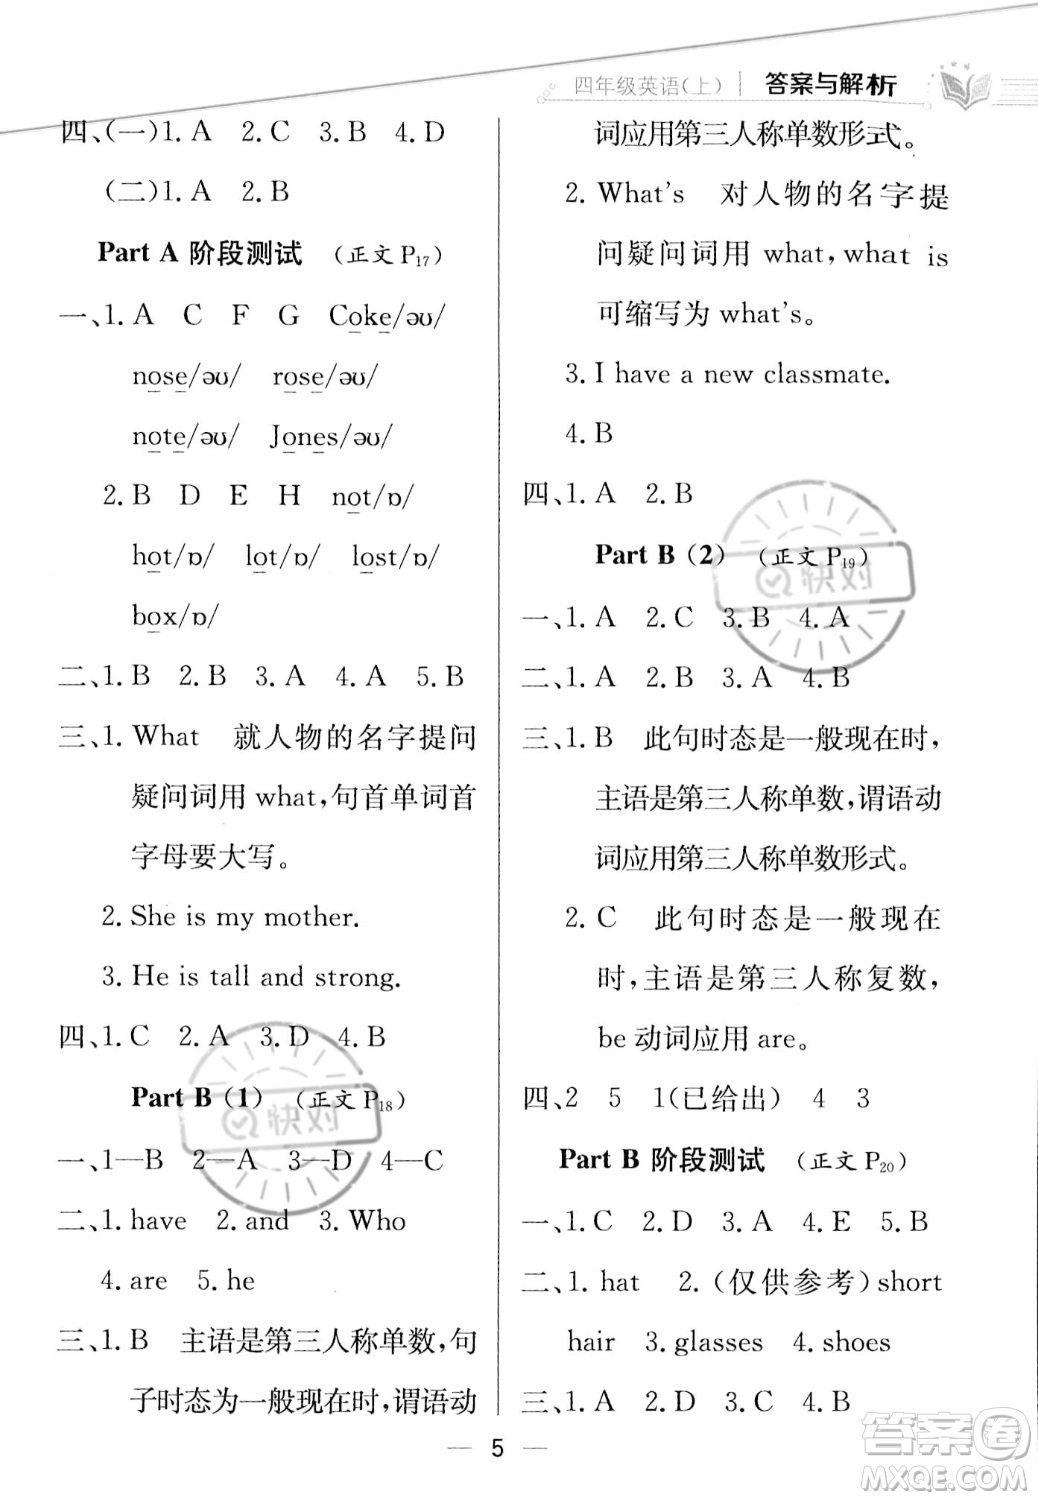 四年级英语(上) | 答案与解析
四、(一)1. A 2. C 3. B 4. D
(二)1. A 2. B
Part A 阶段测试 (正文 P17)
一、1. A C F G Coke/əʊ/
nose/əʊ/ rose/əʊ/
note/əʊ/ Jones/əʊ/
2. B D E H not/ɒ/
hot/ɒ/ lot/ɒ/ lost/ɒ/
box/ɒ/
二、1. B 2. B 3. A 4. A 5. B
三、1. What 就人物的名字提问
疑问词用 what,句首单词首
字母要大写。
2. She is my mother.
3. He is tall and strong.
四、1. C 2. A 3. D 4. B
Part B (1) (正文 P18)
一、1—B 2—A 3—D 4—C
二、1. have 2. and 3. Who
4. are 5. he
三、1. B 主语是第三人称单数,句
子时态为一般现在时,谓语动
词应用第三人称单数形式。
2. What's 对人物的名字提
问疑问词用 what, what is
可缩写为 what's。
3. I have a new classmate.
4. B
四、1. A 2. B
Part B (2) (正文 P19)
一、1. A 2. C 3. B 4. A
二、1. A 2. B 3. A 4. B
三、1. B 此句时态是一般现在时,
主语是第三人称单数,谓语动
词应用第三人称单数形式。
2. C 此句时态是一般现在
时,主语是第三人称复数,
be 动词应用 are。
四、2 5 1(已给出) 4 3
Part B 阶段测试 (正文 P20)
一、1. C 2. D 3. A 4. E 5. B
二、1. hat 2. (仅供参考) short
hair 3. glasses 4. shoes
三、1. A 2. D 3. B 4. A
5
快对
快对
答案圈
MXQE.COM